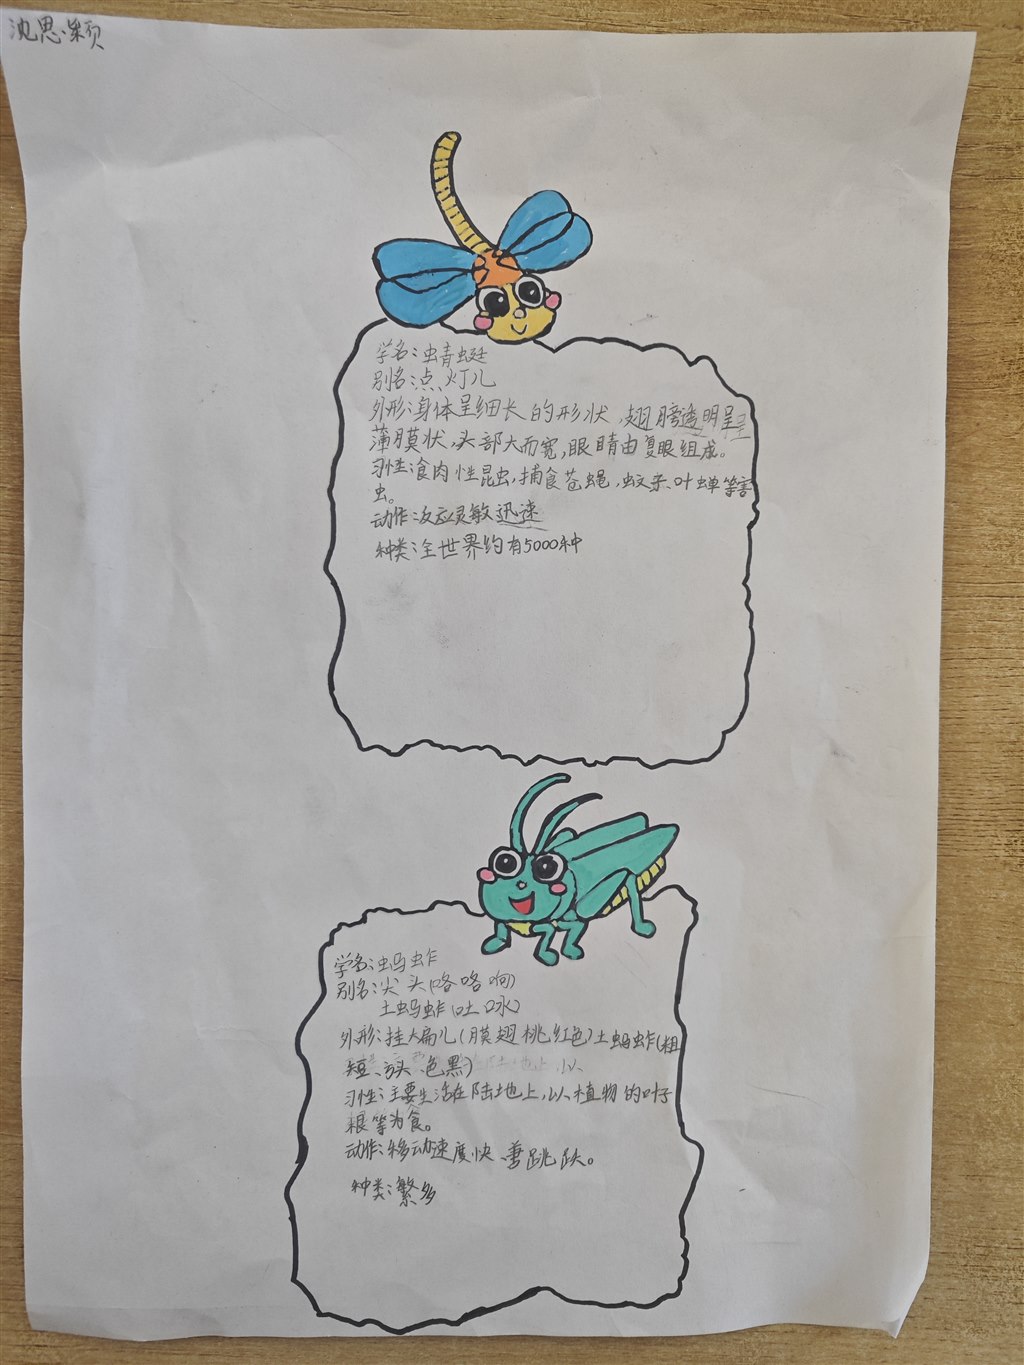 沈思颖
学名:蜻蜓
别名:点灯儿
外形:身体呈细长的形状,翅膀透明呈
薄膜状,头部大而宽,眼睛由复眼组成。
习性:食肉性昆虫,捕食苍蝇,蚊子、叶蝉等害
虫。
动作:反应灵敏迅速
种类:全世界约有5000种
学名:蚂蚱
别名:尖头(咯咯响)
土蚂蚱(吐水)
外形:挂大扁儿(膜翅桃红色)土蚂蚱(粗
短、方头、色黑)
习性:主要生活在陆地上,以植物的叶子
根等为食。
动作:移动速度快、善跳跃。
种类:繁多